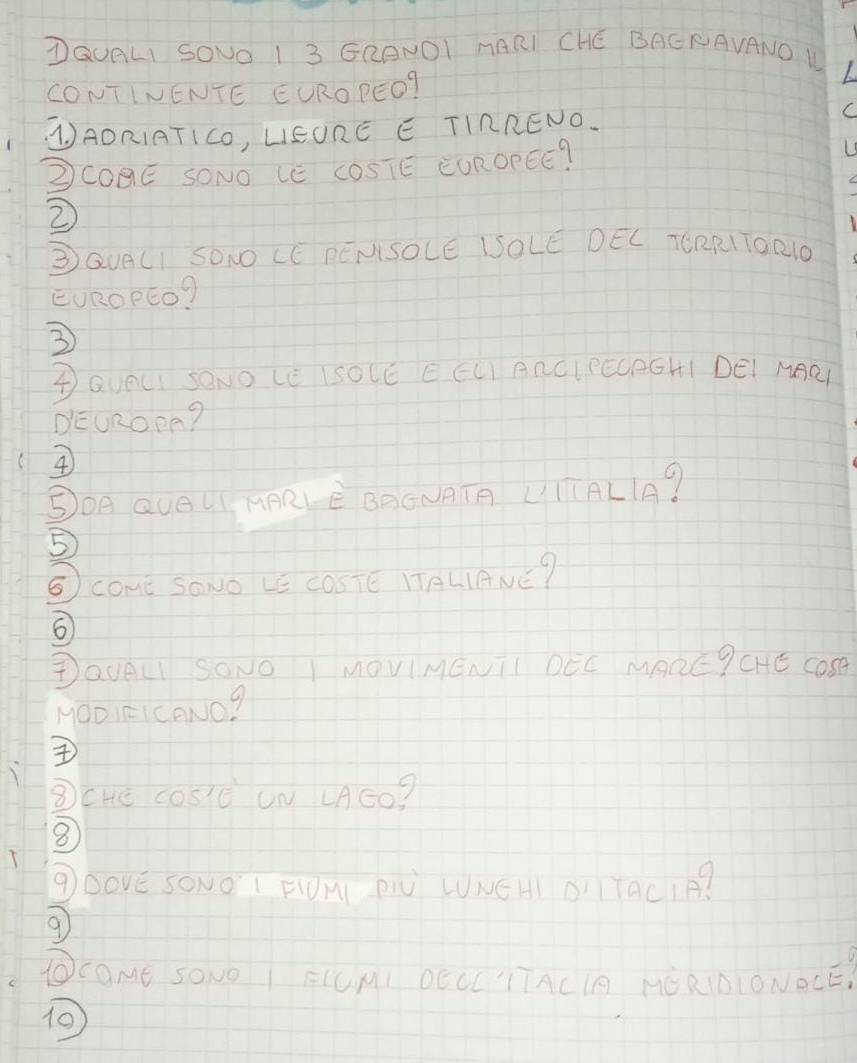 1) QUALI SONO I 3 GRANDI MARI CHE BAGNAVANO IL
CONTINENTE EUROPEO?
1) ADRIATICO, LIGURE E TIRRENO.
2) COME SONO LE COSTE EUROPEE?
2)
3) QUALI SONO LE PENISOLE ISOLE DEL TERRITORIO
EUROPEO?
3)
4) QUALI SONO LE ISOLE E GLI ARCIPELAGHI DEI MARI
D'EUROPA?
4)
5) DA QUALI MARI È BAGNATA L'ITALIA?
5)
6) COME SONO LE COSTE ITALIANE?
6)
7) QUALI SONO I MOVIMENTI DEL MARE? CHE COSA
MODIFICANO?
7)
8) CHE COS'È UN LAGO?
8)
9) DOVE SONO I FIUMI PIÙ LUNGHI D'ITALIA?
9)
10) COME SONO I FIUMI DELL'ITALIA MERIDIONALE?
10)